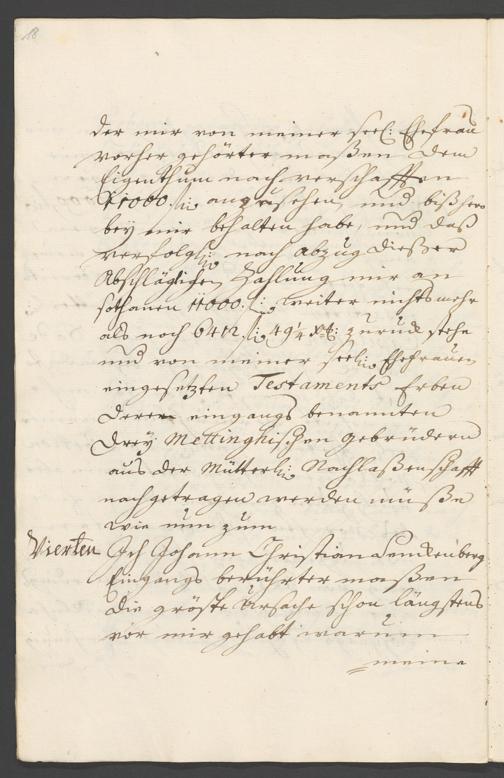 18
der mir von meiner seel: Ehefrau
vorher gehörter maßen dem
Eigenthum nach verschafften
11000. fl: anzusehen, und bißhero
bey mir behalten habe, und daß
verfolgl: nach abzug dießer
Abschlägigen Zahlung mir an
sothanen 11000. fl: weiter nichts mehr
als noch 6412. fl: 49¼ Xr: zuruck stehe
und von meiner seel: Ehefrauen
eingesetzten Testaments Erben
deren eingangs benannten
drey Mettinghischen gebrüdern
aus der Mütterl: Nachlaßenschafft
nachgetragen werden müße
wie nun zum
Vierten Ich Johann Christian Senckenberg
Eingangs berührter maßen
die gröste Ursache schon längstens
vor mir gehabt warum
meine